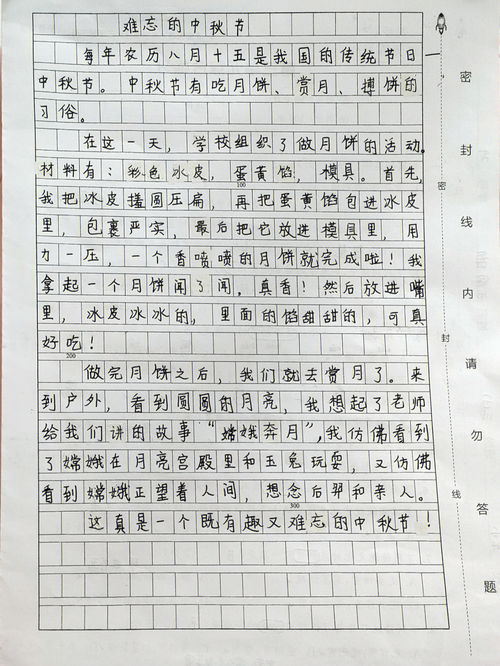 难忘的中秋节
每年农历八月十五是我国的传统节日一
中秋节。中秋节有吃月饼、赏月、搏饼的
习俗。
在这一天，学校组织了做月饼的活动。
材料有：彩色冰皮，蛋黄馅，模具。首先，
100
我把冰皮搓圆压扁，再把蛋黄馅包进冰皮
里，包裹严实，最后把它放进模具里，用
力一压，一个香喷喷的月饼就完成啦！我
拿起一个月饼闻了闻，真香！然后放进嘴
里，冰皮冰冰的，里面的馅甜甜的，可真
好吃！
200
做完月饼之后，我们就去赏月了。来
到户外，看到圆圆的月亮，我想起了老师
给我们讲的故事“嫦娥奔月”，我仿佛看到
了嫦娥在月亮宫殿里和玉兔玩耍，又仿佛
看到嫦娥正望着人间，想念后羿和亲人。
300
这真是一个既有趣又难忘的中秋节！
密封线内请勿答题
密
封
线